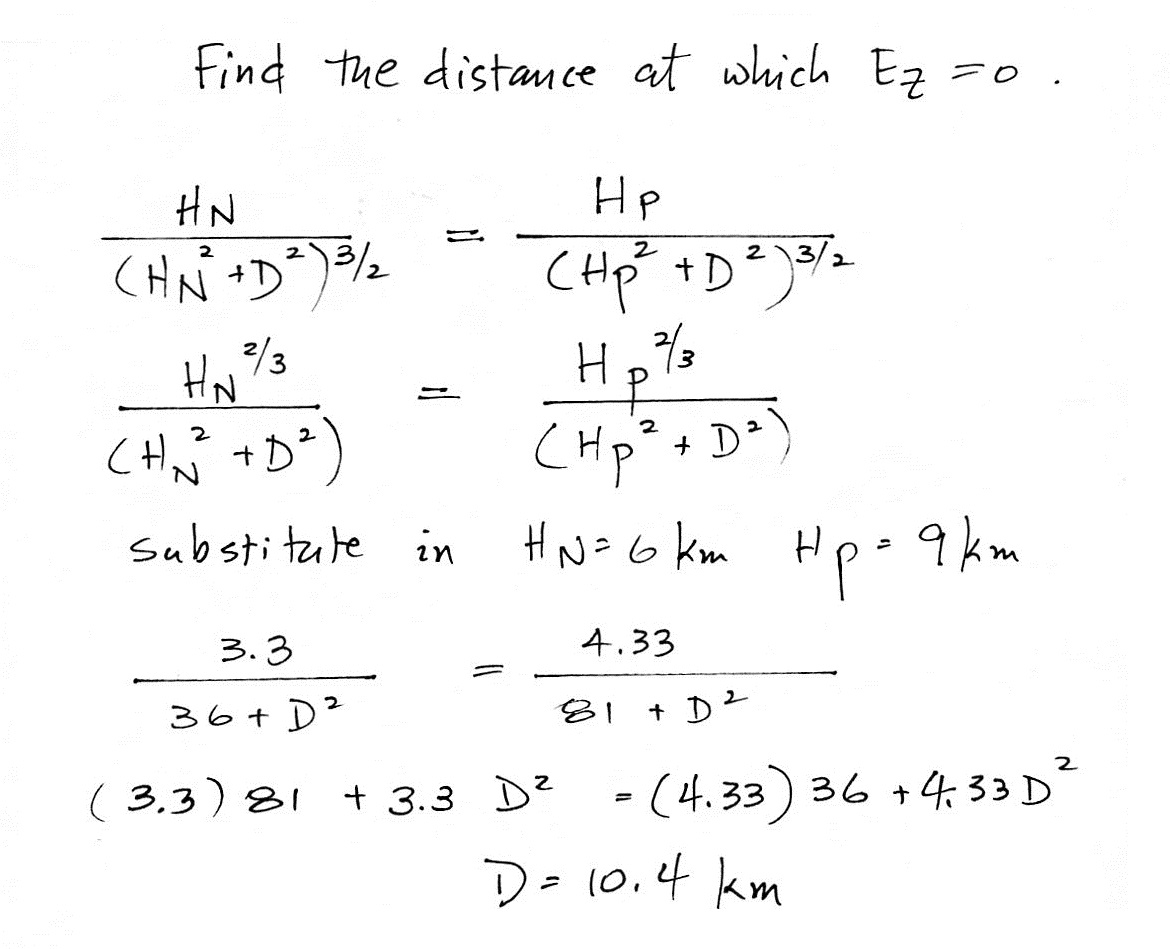 Find the distance at which E_z = 0 .
H_N / (H_N² + D²)^3/2 = H_P / (H_P² + D²)^3/2
H_N^2/3 / (H_N² + D²) = H_P^2/3 / (H_P² + D²)
substitute in H_N = 6 km H_P = 9 km
3.3 / 36 + D² = 4.33 / 81 + D²
(3.3) 81 + 3.3 D² = (4.33) 36 + 4.33 D²
D = 10.4 km